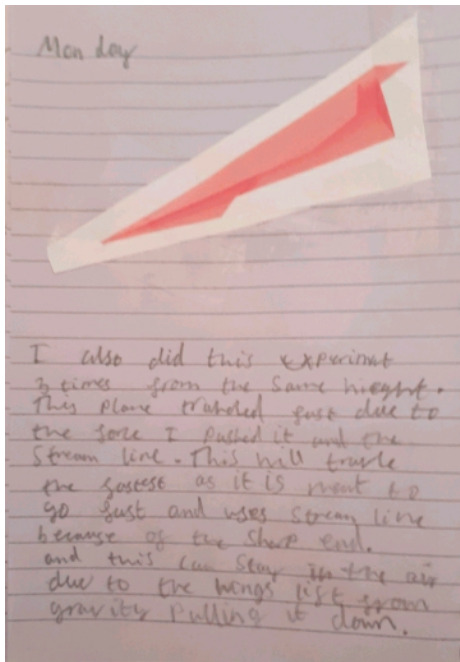 Monday
I also did this experimat
3 times from the same hieght.
This plane traheled fast due to
the forse I pushed it and the
Stream line. This will travle
the fastest as it is ment to
go fast and uses stream line
because of the sharp end.
and this can stay in the air
due to the wings lift from
gravity pulling it down.